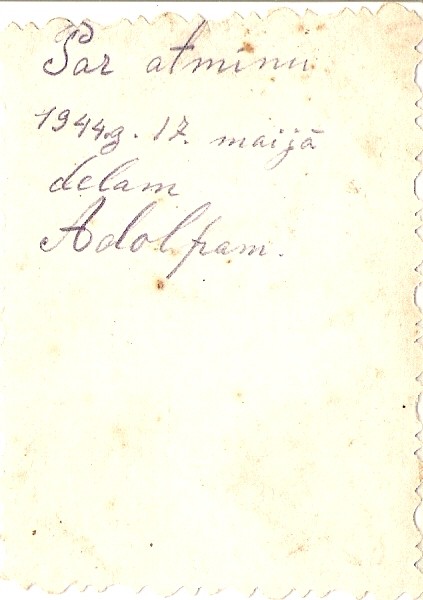 Par atminu
1944.g. 17. maijā
delam
Adolfam.